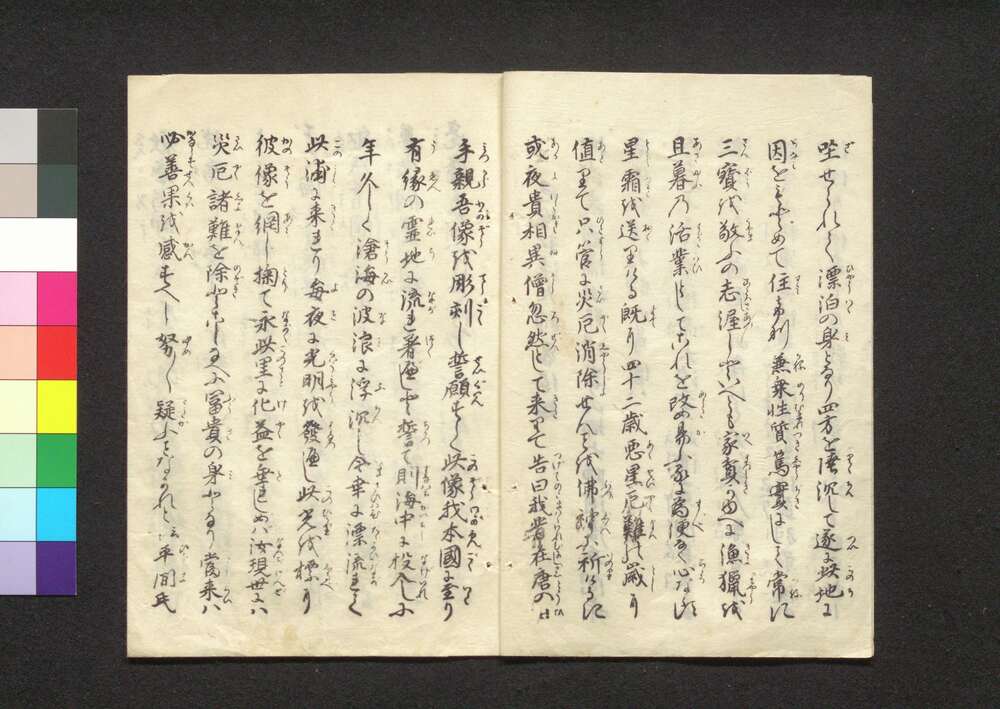 坐せられて漂泊の身となり四方を陸沉して遂に此地に
因をもとめて住す則兼乗性質篤實にして常に
三寳を敬ふの志渥しといへども家貧きゆへに漁獵を
旦暮の活業としてこれを改め易ふるに為便なき心ならず
星霜を送りける既に四十二歳悪星厄難の歳に
値りて只管に災厄消除せんことを佛神に祈りけるに
或夜貴相異僧忽然として来りて告曰我昔在唐の日
手親吾像を彫刻し誓願すらく此像我本國に至り
有縁の霊地に流れ着べしと誓て則海中に投入しに
年久しく滄海の波浪に浮沉し今幸に漂流して
此浦に来れり毎夜に光明を發べし此光を標に
彼像を網し掬て永此里に化益を垂れしめば汝現世には
災厄諸難を除かしめ富貴の身となり當来は
必善果を感ずべし努々疑ふことなかれと云平間氏